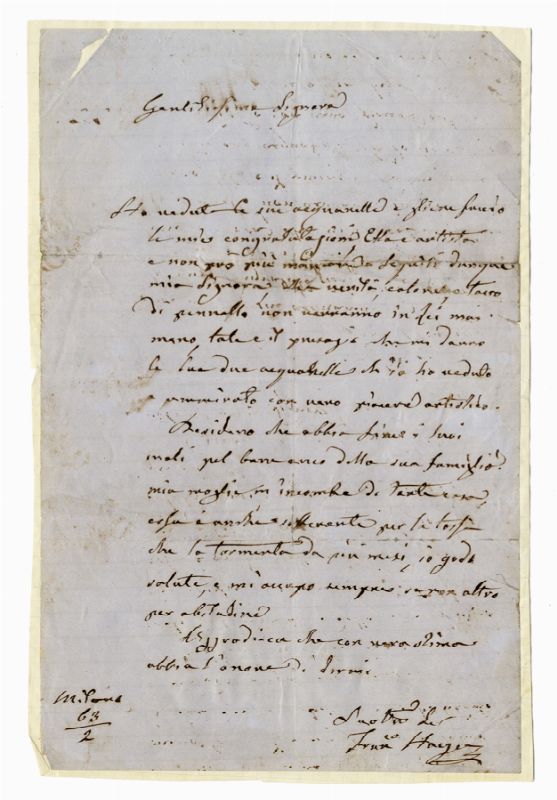 Gentilissima Signora
Ho vedut le sue acquarelle e gliene faccio
le mie congratulazioni Ella è artista
e non può più mancare seguiti dunque
mia Signora verità, colore e tocco
di pennello non verranno in Lei mai
meno, tale è il presagio che mi danno
le sue due acquarelle che io ho veduto
e ammirato con vero piacere artistico.
Desidero che abbia fine i suoi
mali pel bene anco della sua famiglia
mia moglie m'incombe di tante cose,
essa è anche sofferente per la tosse
che la tormenta da più mesi, io godo
salute, e mi occupo sempre se per altro
per abitudine
Aggradisca che con vera stima
abbia l'onore di dirmi
Milano
63
2
Suo
Franco Hayez